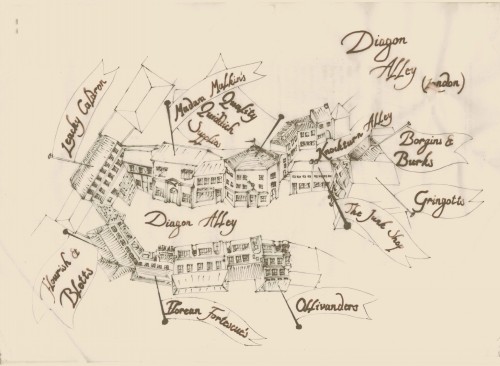 Diagon
Alley (London)
Leaky Caldron
Madam Malkin's
Quality
Quidditch
Supplies
Knockturn Alley
Borgins &
Burks
Gringotts
The Junk Shop
Diagon Alley
Flourish &
Blotts
Florean Fortescue's
Ollivanders